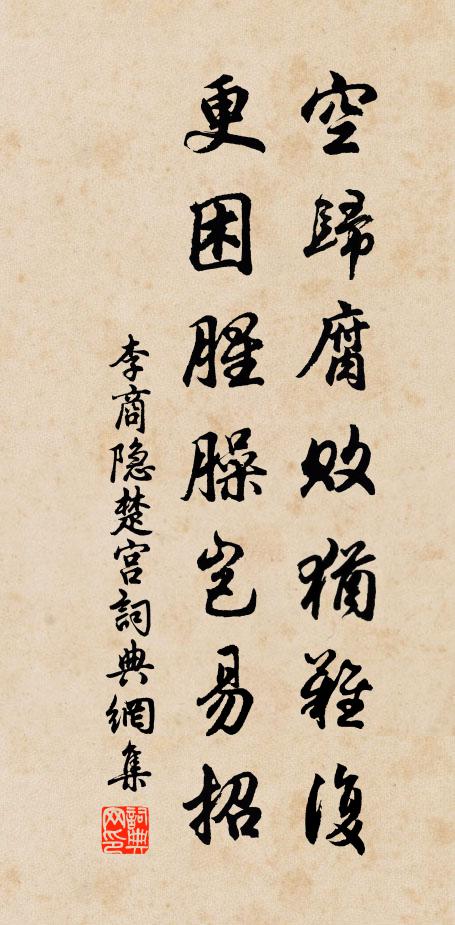 空歸腐敗猶難復
更困腥臊豈易招
李商隐楚宫詞典網集
詞典網印